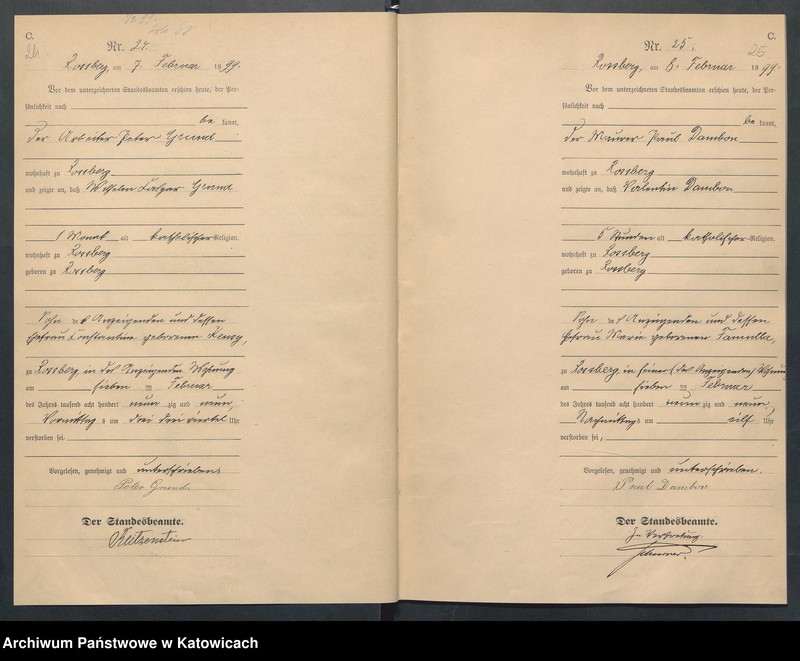 C.
Nr. 24.
Rossberg, am 7. Februar 1899.
Vor dem unterzeichneten Standesbeamten erschien heute, der Per-
sönlichkeit nach
be kannt,
der Arbeiter Peter Grund
wohnhaft zu Rossberg
und zeigte an, daß Wilhelm Caspar Grund
1 Monat alt katholischer Religion,
wohnhaft zu Rossberg
geboren zu Rossberg
Sohn des Anzeigenden und dessen
Ehefrau Constantine geborenen
zu Rossberg in des Anzeigenden Wohnung
am sieben ten Februar
des Jahres tausend acht hundert neun zig und neun,
Vormittags um drei drei viertel Uhr
verstorben sei.
Vorgelesen, genehmigt und unterschrieben.
Peter Grund.
Der Standesbeamte.
C.
25
Nr. 25.
Rossberg, am 8. Februar 1899.
Vor dem unterzeichneten Standesbeamten erschien heute, der Per-
sönlichkeit nach
be kannt,
der Maurer Paul Dambon
wohnhaft zu Rossberg
und zeigte an, daß Valentin Dambon
5 Stunden alt katholischer Religion,
wohnhaft zu Rossberg
geboren zu Rossberg
Sohn des Anzeigenden und dessen
Ehefrau Marie geborenen Famulla,
zu Rossberg in seiner (des Anzeigenden) Wohnung
am sieben ten Februar
des Jahres tausend acht hundert neun zig und neun,
Nachmittags um elf Uhr
verstorben sei,
Vorgelesen, genehmigt und unterschrieben.
Paul Dambon
Der Standesbeamte.
In Vertretung.
Archiwum Państwowe w Katowicach